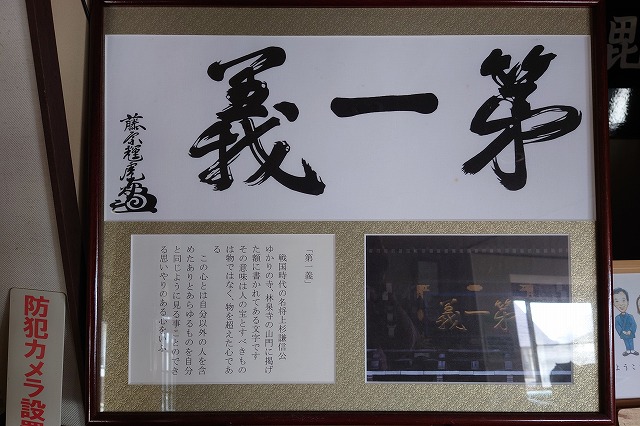 第一義
藤原輝虎
「第一義」
戦国時代の名将上杉謙信公
ゆかりの寺、林泉寺の山門に掲げ
た額に書かれてある文字です
その意味は人の宝とすべきもの
は物ではなく、物を超えた心であ
る
この心とは自分以外の人を含
めたありとあらゆるものを自分
と同じように見る事ことのでき
る思いやりのある心を
第一義
防犯カメラ設置
毘
ようこ